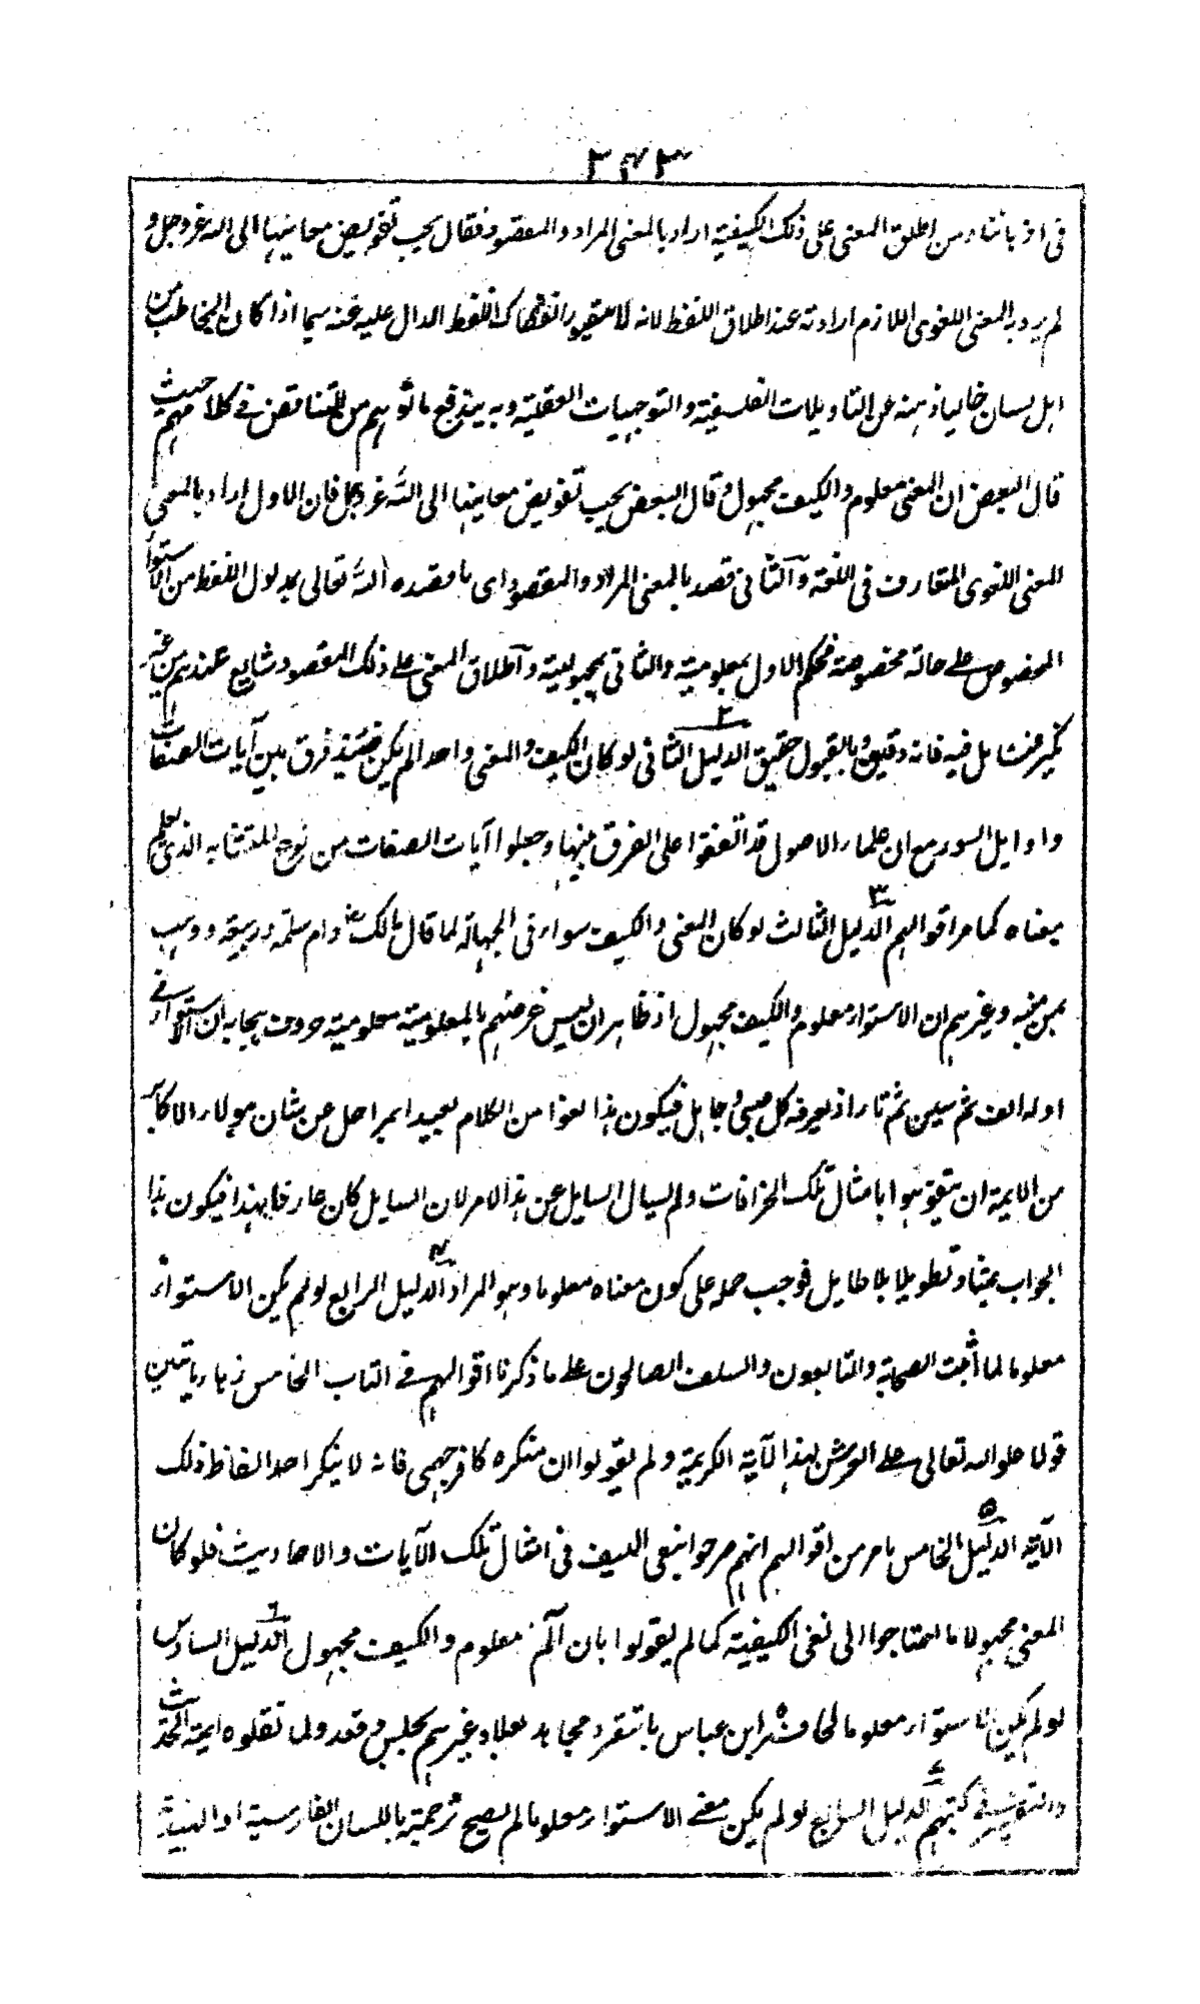 ٢٤٣
فى اذهاننا ومن اطلق المعنى على ذلك الكيفية اراد بالمعنى المراد والمقصود فقال يجب تفويض معانيها الى الله عزوجل و
لم يرد به المعنى اللغوى اللازم ارادته عند اطلاق اللفظ لانه لا يتصور انفكاك اللفظ الدال عليه عنه سيما اذا كان المخاطب من
اهل لسان خاليا ذهنه عن التاويلات الفلسفية والتوجيهات العقلية وبه يندفع ما توهم من التناقض فى كلامهم حيث
قال البعض ان المعنى معلوم والكيف مجهول وقال البعض يجب تفويض معانيها الى الله عزوجل فان الاول اراد بالمعنى
المعنى اللغوى المتعارف فى اللغة والثانى قصد بالمعنى المراد والمقصود اى ما قصده الله تعالى بمدلول اللفظ من الاستواء
المخصوص على حالة مخصوصة فحكم الاول بمعلومية والثانى بمجهولية واطلاق المعنى على ذلك المقصود شايع عندهم من غير
نكير فتامل فيه فانه دقيق وبالقبول حقيق الدليل الثانى لو كان الكيف والمعنى واحدا لم يكن حينئذ فرق بين آيات الصفات
واوايل السور مع ان علماء الاصول قد اتفقوا على الفرق بينها وجعلوا آيات الصفات من نوع المتشابه الذى يعلم
معناه كما مر اقوالهم الدليل الثالث لو كان المعنى والكيف سواء فى الجهالة لما قال مالك وام سلمة وربيعة ووهب
بن منبه وغيرهم ان الاستواء معلوم والكيف مجهول اذ ظاهر ان ليس غرضهم بالمعلومية معلومية حروف هجايه ان الاستواء فى
اوله الف ثم سين ثم تاء اذ يعرفه كل صبى وجاهل فيكون هذا لغوا من الكلام بعيدا بمراحل عن شان هولاء الاكابر
من الايمة ان يتفوهوا بامثال تلك الخرافات ولم يسال السايل عن هذا الامر لان السايل كان عارفا بهذا فيكون هذا
الجواب عبثا وتطويلا بلا طايل فوجب حمله على كون معناه معلوما وهو المراد الدليل الرابع لو لم يكن الاستواء
معلوما لما اثبت الصحابة والتابعون والسلف الصالحون على ما ذكرنا اقوالهم فى الباب الخامس زهاء مايتين
قولا علو الله تعالى على العرش بهذا الآية الكريمة ولم يقولوا ان منكره كافر جهمى فانه لا ينكر احد الفاظ ذلك
الآية الدليل الخامس ما مر من اقوالهم انهم صرحوا بنفى الكيف فى امثال تلك الآيات والاحاديث فلو كان
المعنى مجهولا ما احتاجوا الى نفى الكيفية كما لم يقولوا بان الم معلوم والكيف مجهول الدليل السادس
لو لم يكن الاستواء معلوما لما فسره ابن عباس باستقر ومجاهد بعلا وغيرهم بجلس وقعد ولما نقلوه ايمة الحديث
والتفسير فى كتبهم الدليل السابع لو لم يكن معنى الاستواء معلوما لم يصح ترجمته باللسان الفارسية او الهندية